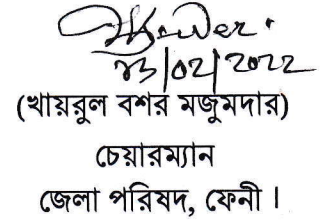 23/02/2022
(খায়রুল বশর মজুমদার)
চেয়ারম্যান
জেলা পরিষদ, ফেনী ।